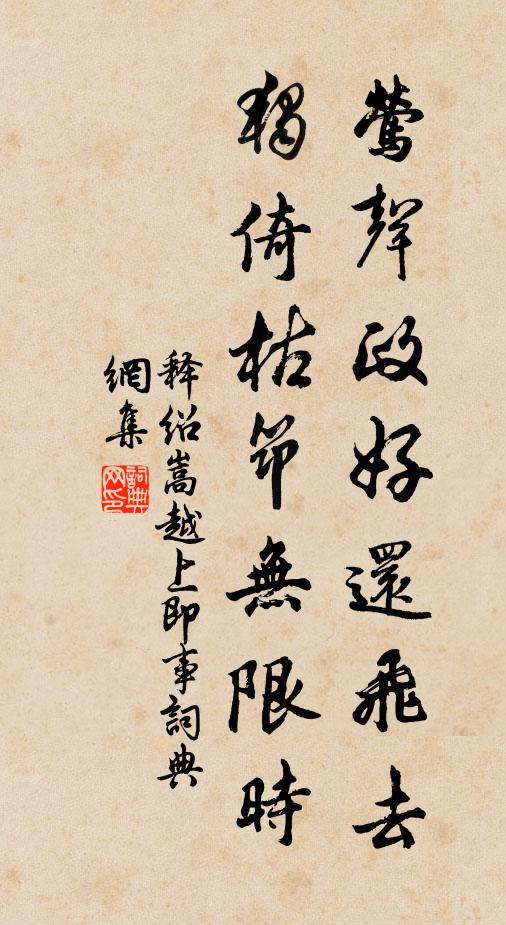 鶯聲政好還飛去
獨倚枯筇無限時
释绍嵩越上即事詞典
網集
詞典網印